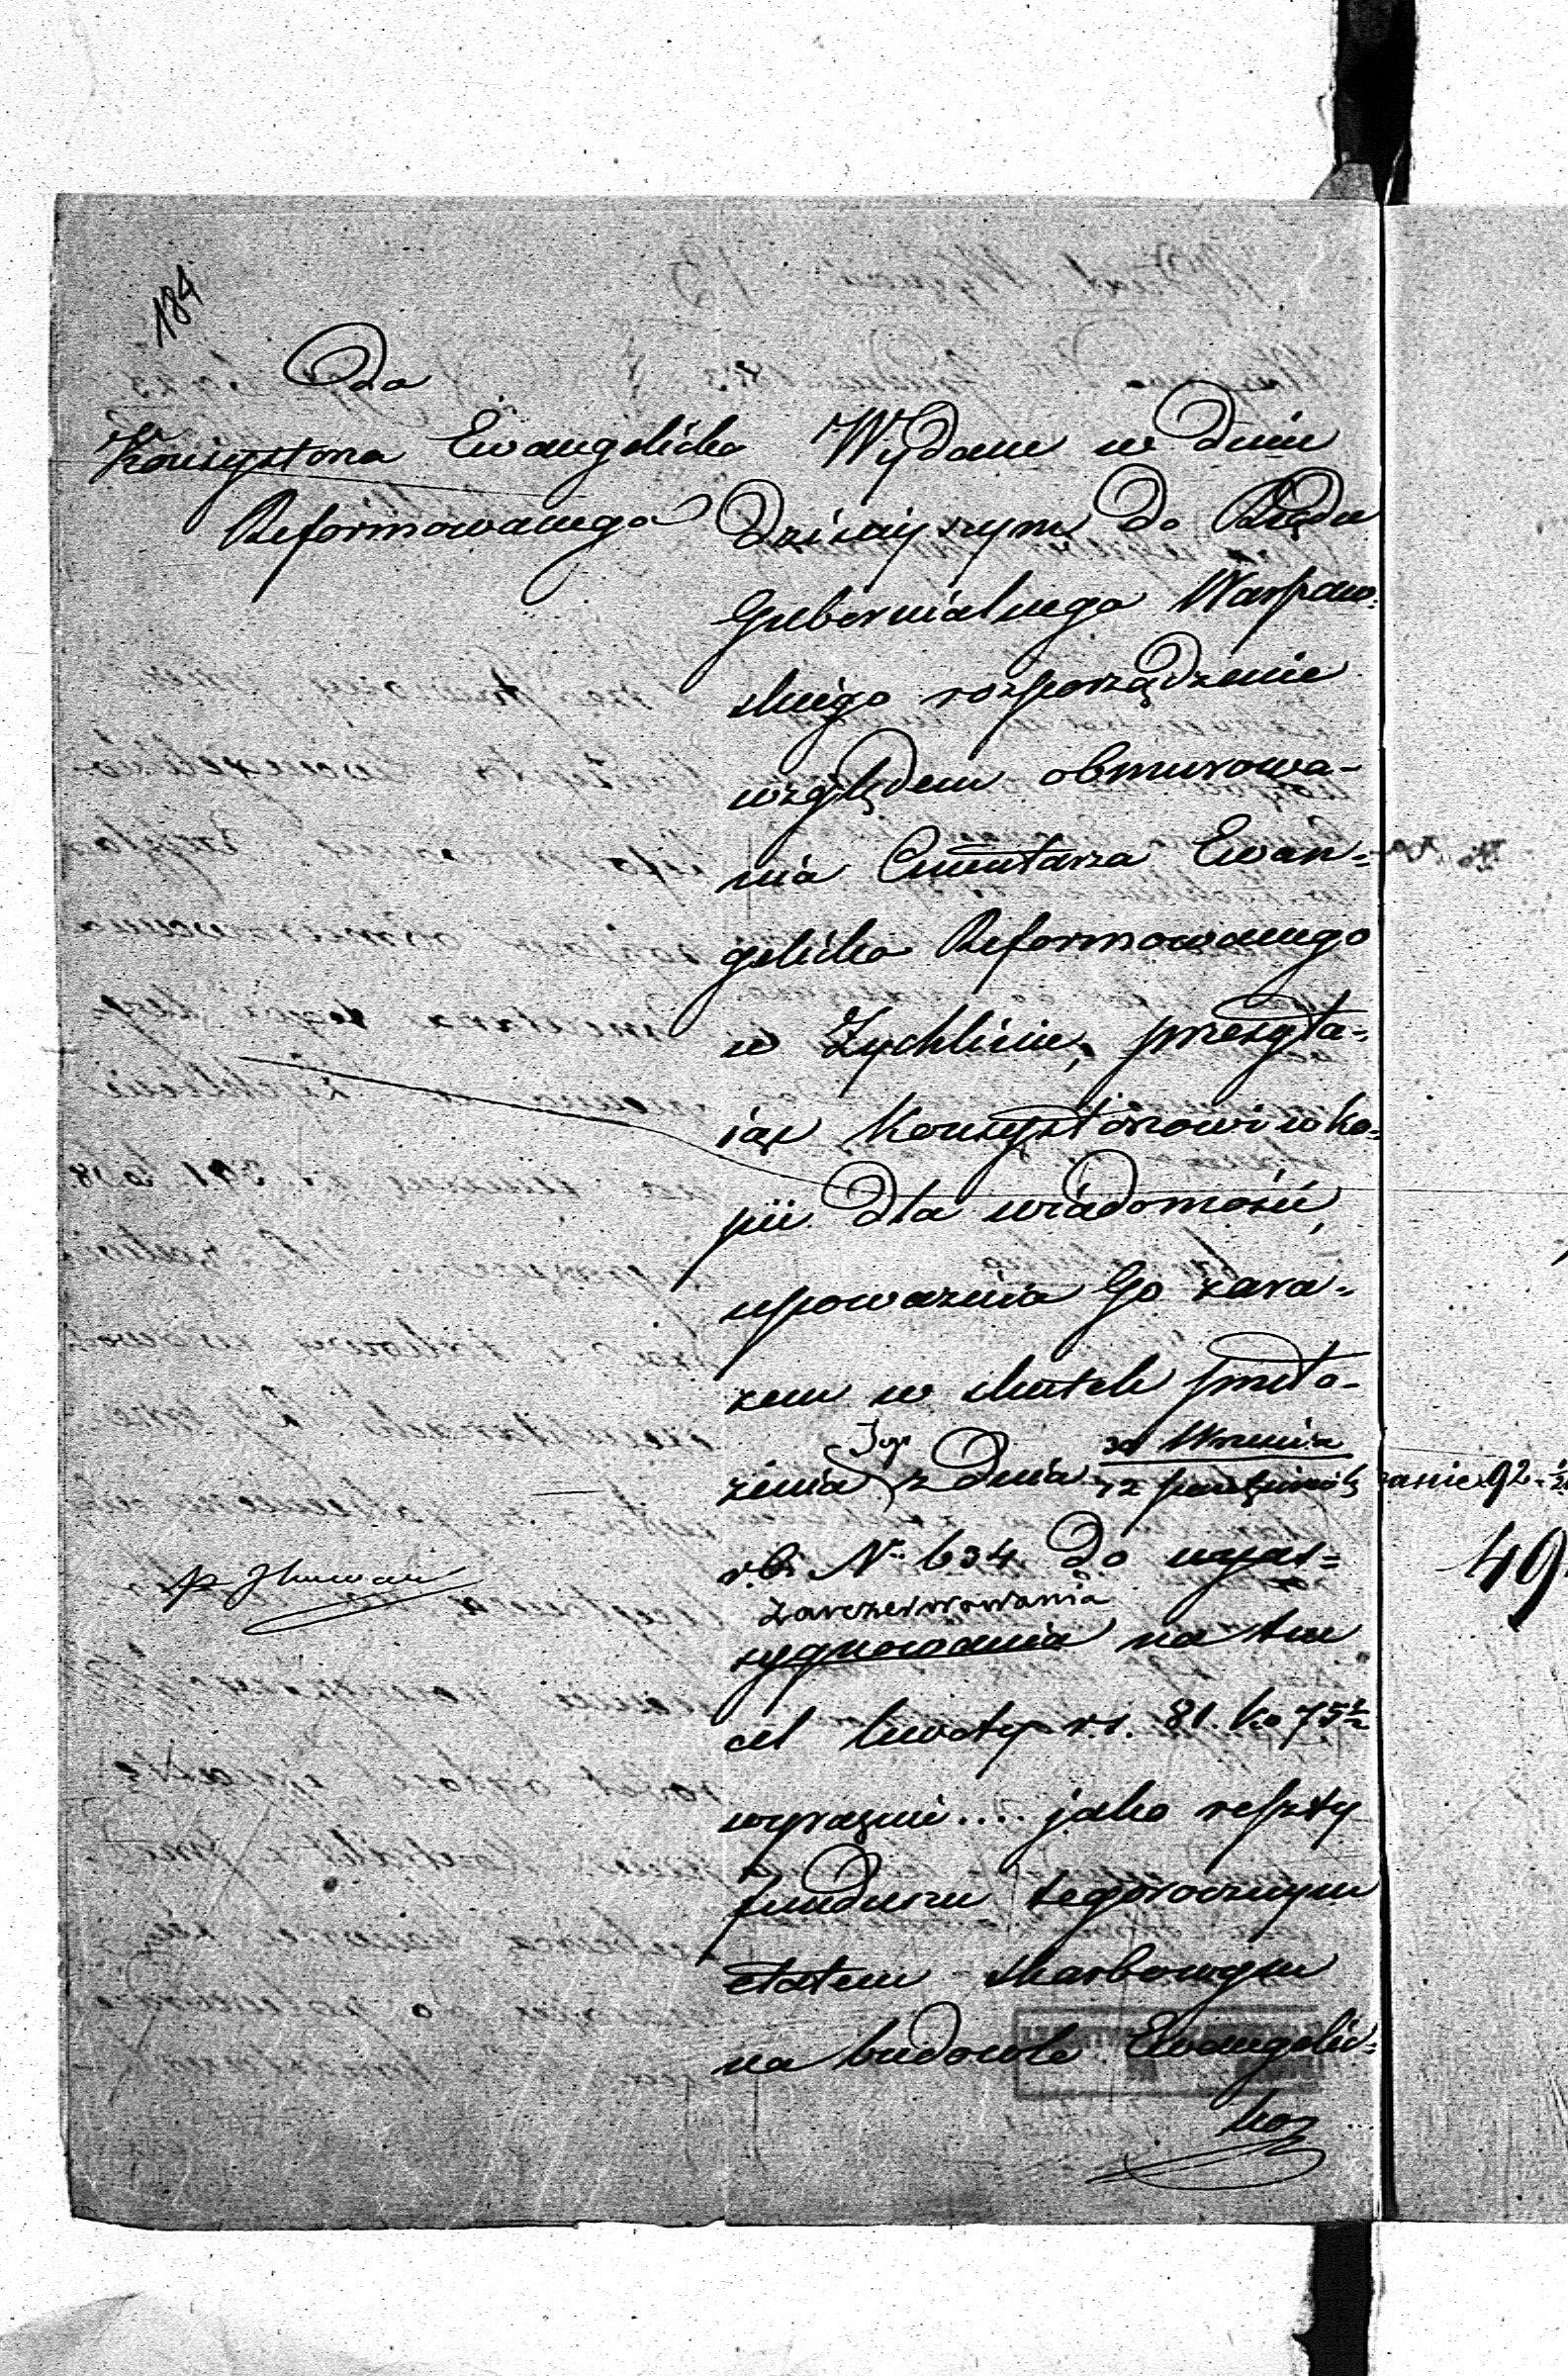 184
Do
Konsystorza Ewangelicko
Reformowanego
Wydane w Dniu
Dzisiayszym do Rządu
Gubernialnego Warszaw-
skiego rozporządzenie
względem obmurowa-
nia Cmentarza Ewan=
gelicko Reformowanego
w Żychlinie, przesyła-
iąc Konsystorzowi w ko-
pii dla wiadomości,
upoważnia Go zara-
zem w skutek przeło-
żenia Jego z dnia 30 Września
12 Październik
r.b. Nr 634 do wyas=
sygnowania zarezerwowania na ten
cel kwoty r.s. 81. ko 75½
wyraźnie .... jako reszty
funduszu tegorocznym
etatem skarbowym
na budowle Ewangelic-
ko